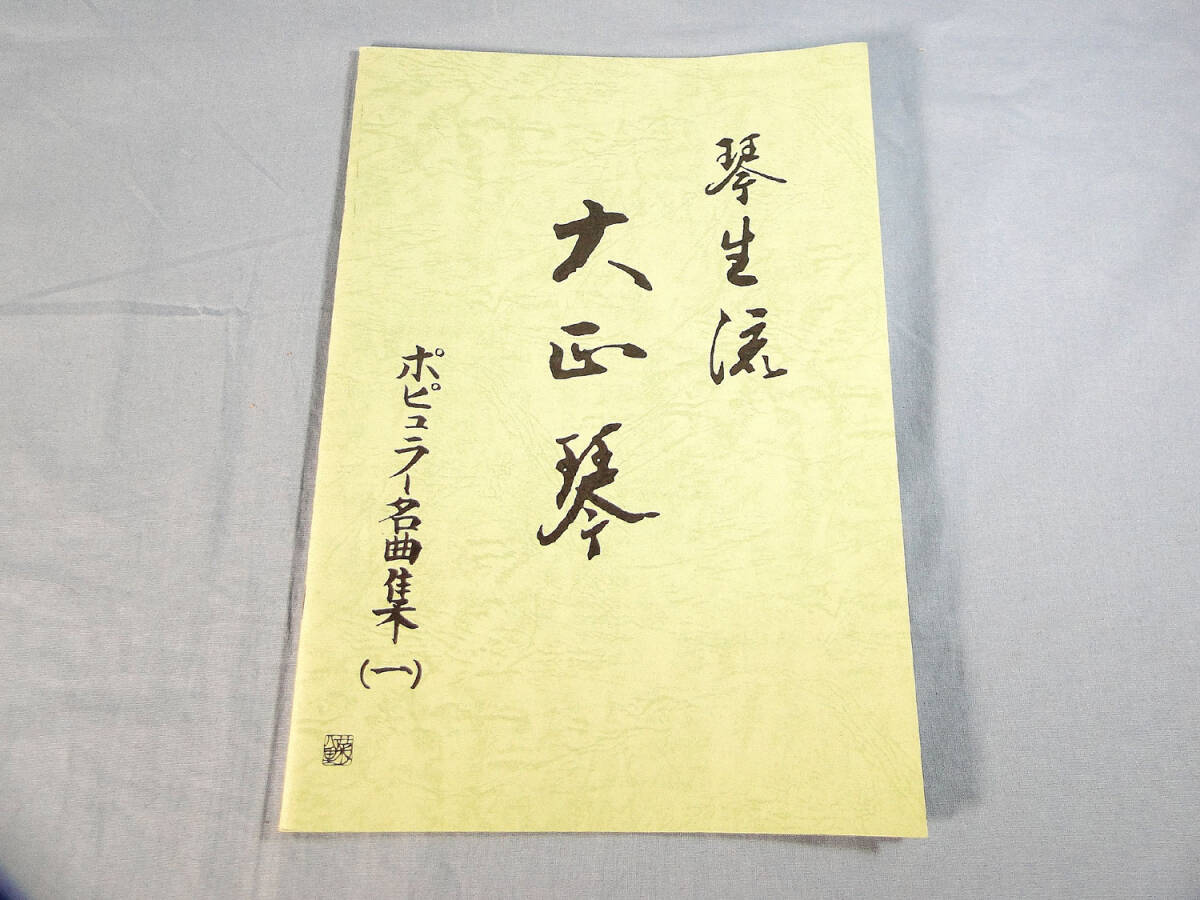 琴生流
大正琴
ポピュラー名曲集(一)